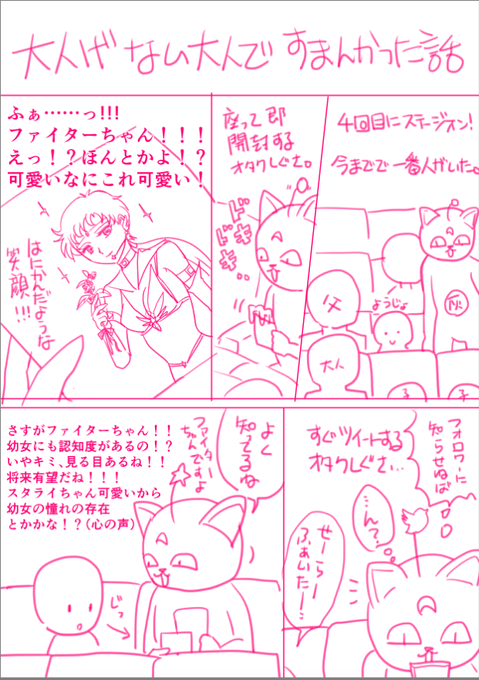 大人げない大人ですまんかった話
4回目にステージオン!
今までで一番人がいた。
父
ようじょ
大人
灰
子
子
座って即
開封する
オタクしぐさ。
ドキドキ…
ふぁ……っ!!!
ファイターちゃん!!!
えっ!?ほんとかよ!?
可愛いなにこれ可愛い!
はにかんだような
笑顔!!!
フォロワーに
知らせねば
すぐツイートする
オタクしぐさ…
…ん?
せーらー
ふぁいたー…
よく
知ってるね
ファイター
ちゃんですよ
さすがファイターちゃん!!
幼女にも認知度があるの!?
いやキミ、見る目あるね!!
将来有望だね!!!
スタライちゃん可愛いから
幼女の憧れの存在
とかかな!?(心の声)
じっ